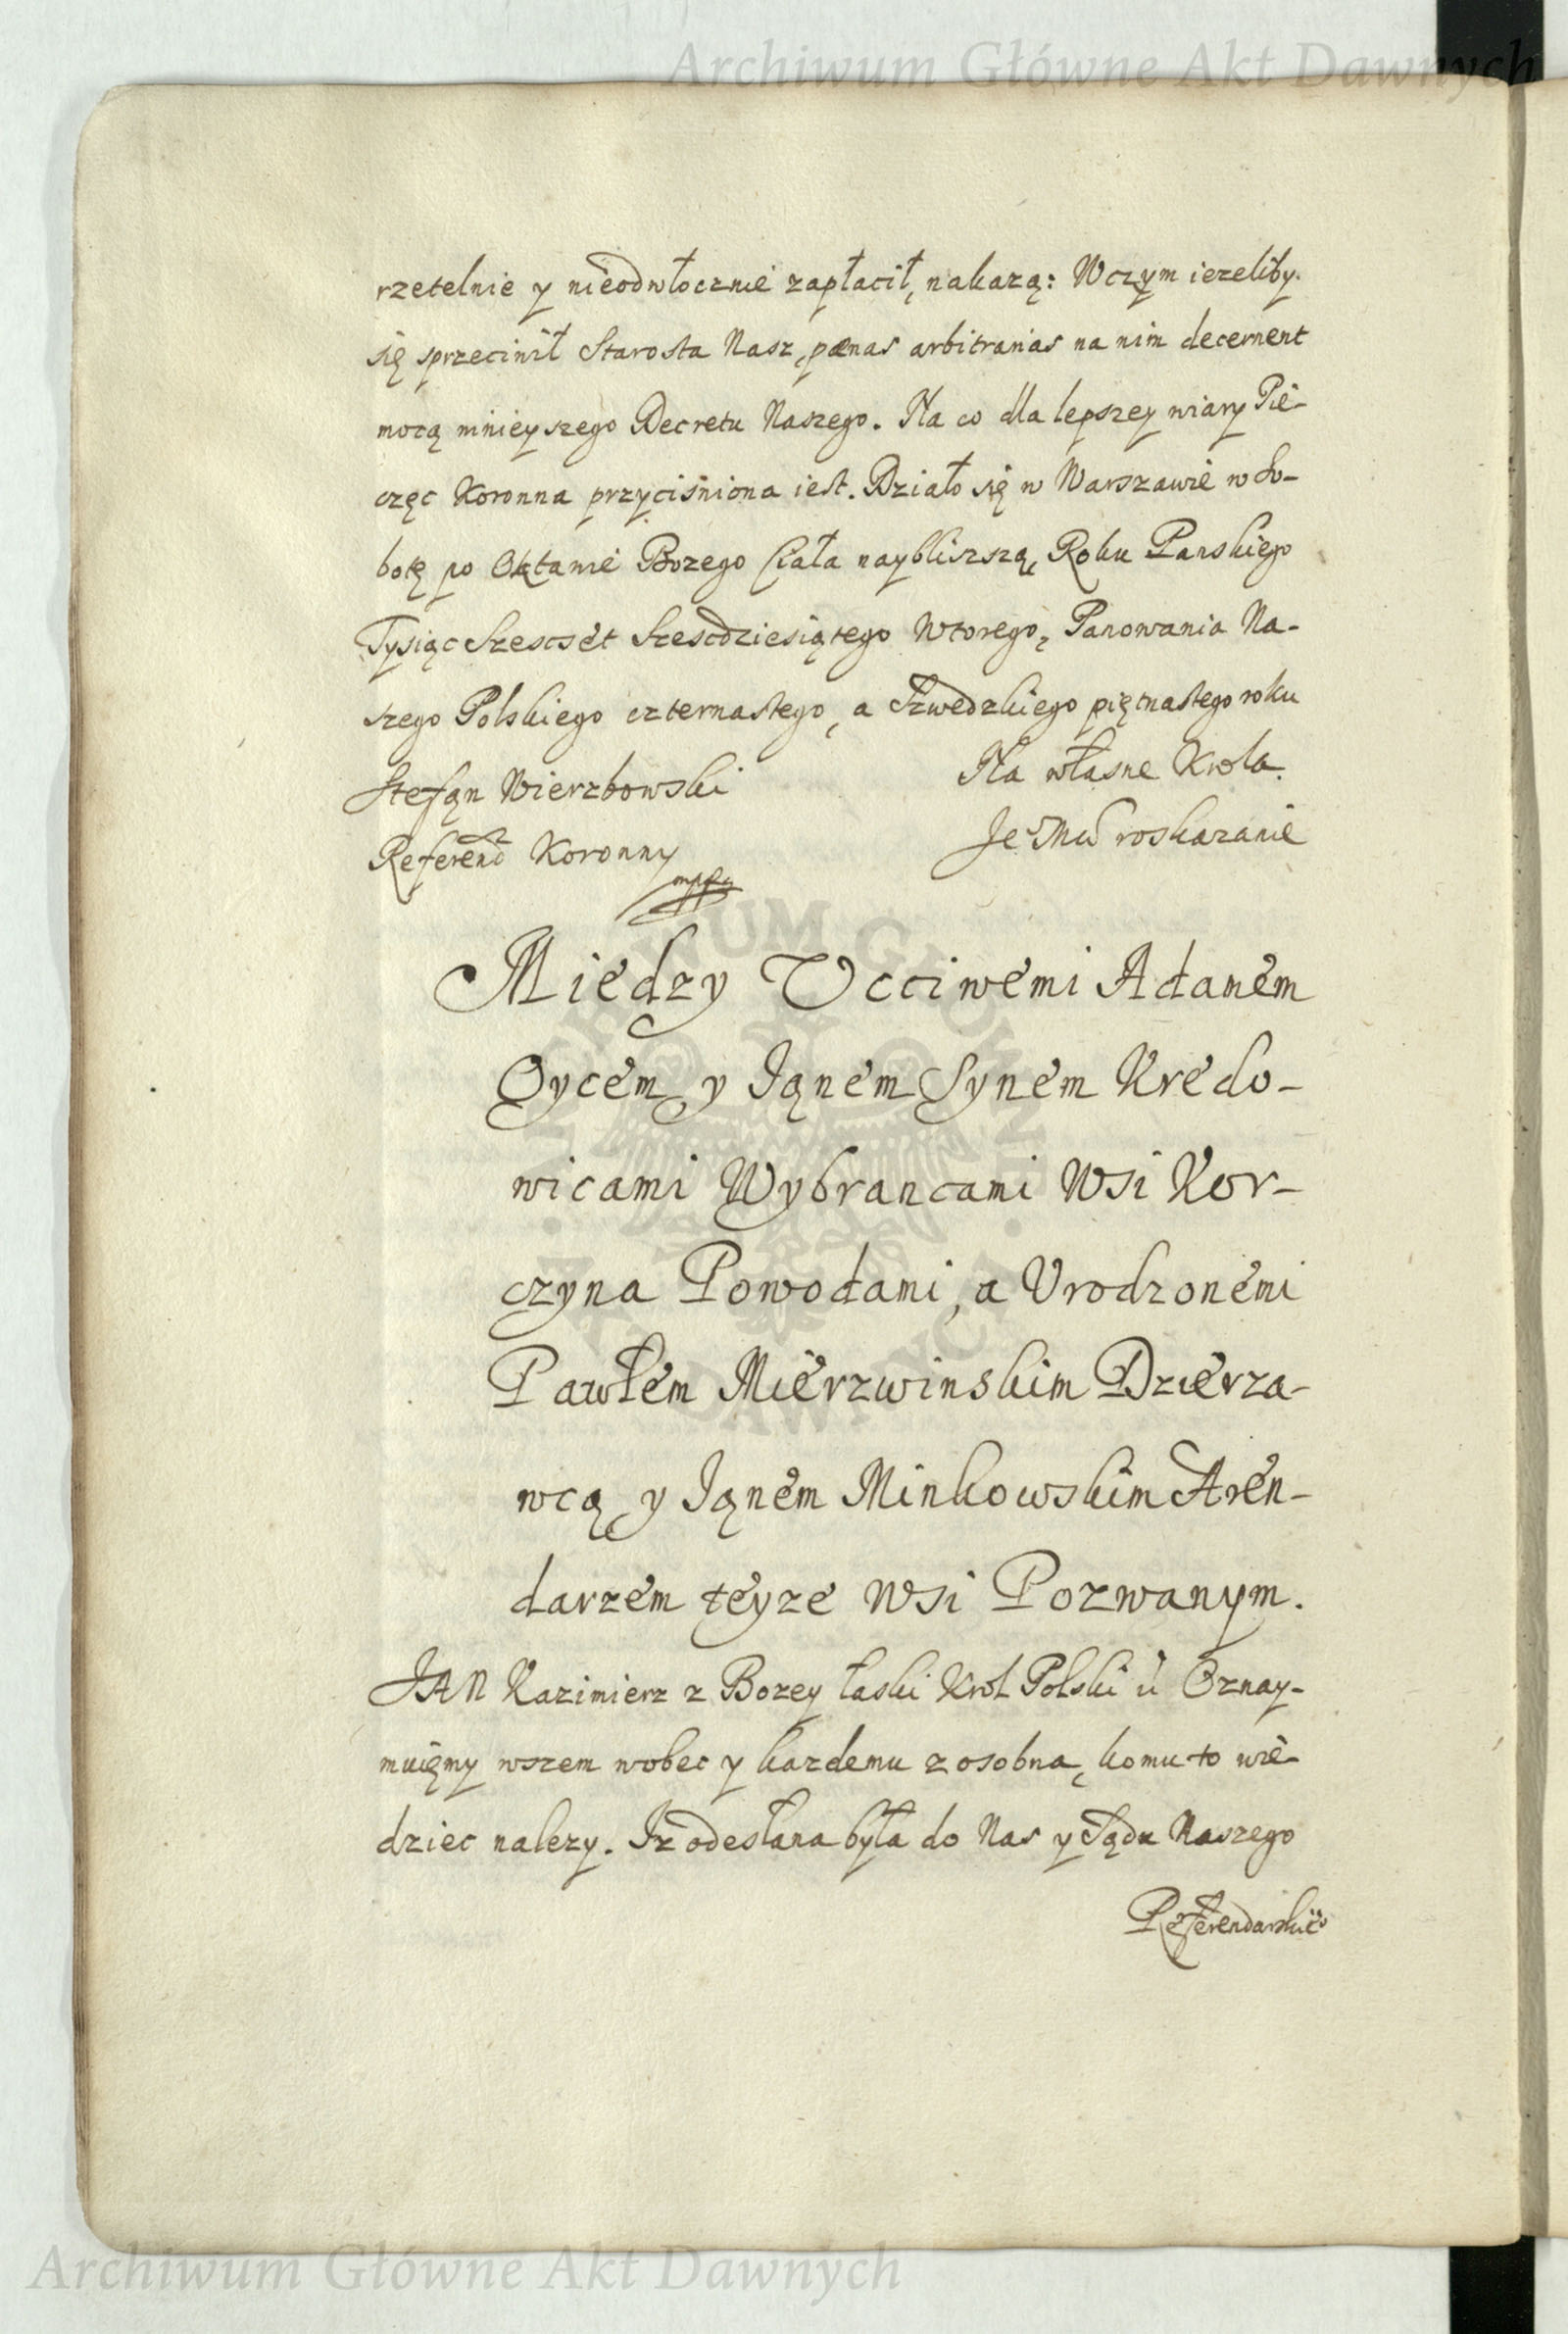 Archiwum Główne Akt Dawnych
rzetelnie y nieodwłocznie zapłacił, nakażą: W czym iezeliby
się sprzeciwił Starosta Nasz, pœnas arbitrarias na nim decernent
mocą ninieyszego Decretu Naszego. Na co dla lepszey wiary Pie-
częc Koronna przyciśniona iest. Działo się w Warszawie w So-
botę po Oktawie Bozego Ciała naybliszszą, Roku Panskiego
Tysiąc Szescset Szescdziesiątego Wtorego, Panowania Na-
szego Polskiego czternastego, a Szwedzkiego piętnastego roku
Stefąn Wierzbowski
Referend Koronny
mpp
Na własne Krola
Je° Mci roskazanie
Miedzy Ucciwemi Adamem
Oycem y Iąnem Synem Kredo-
wicami Wybrancami Wsi Kor-
czyna Powodami, a Vrodzonemi
Pawłem Mierzwinskim Dzierza-
wcą y Iąnem Minkowskim Aren-
darzem teyze Wsi Pozwanym.
JAN Kazimierz z Bozey łaski Krol Polski &c Oznay-
muięmy wszem wobec y kazdemu z osobna, komu to wie-
dziec nalezy. Iz odesłana była do Nas y Sądu Naszego
Referendarskie°
Archiwum Główne Akt Dawnych